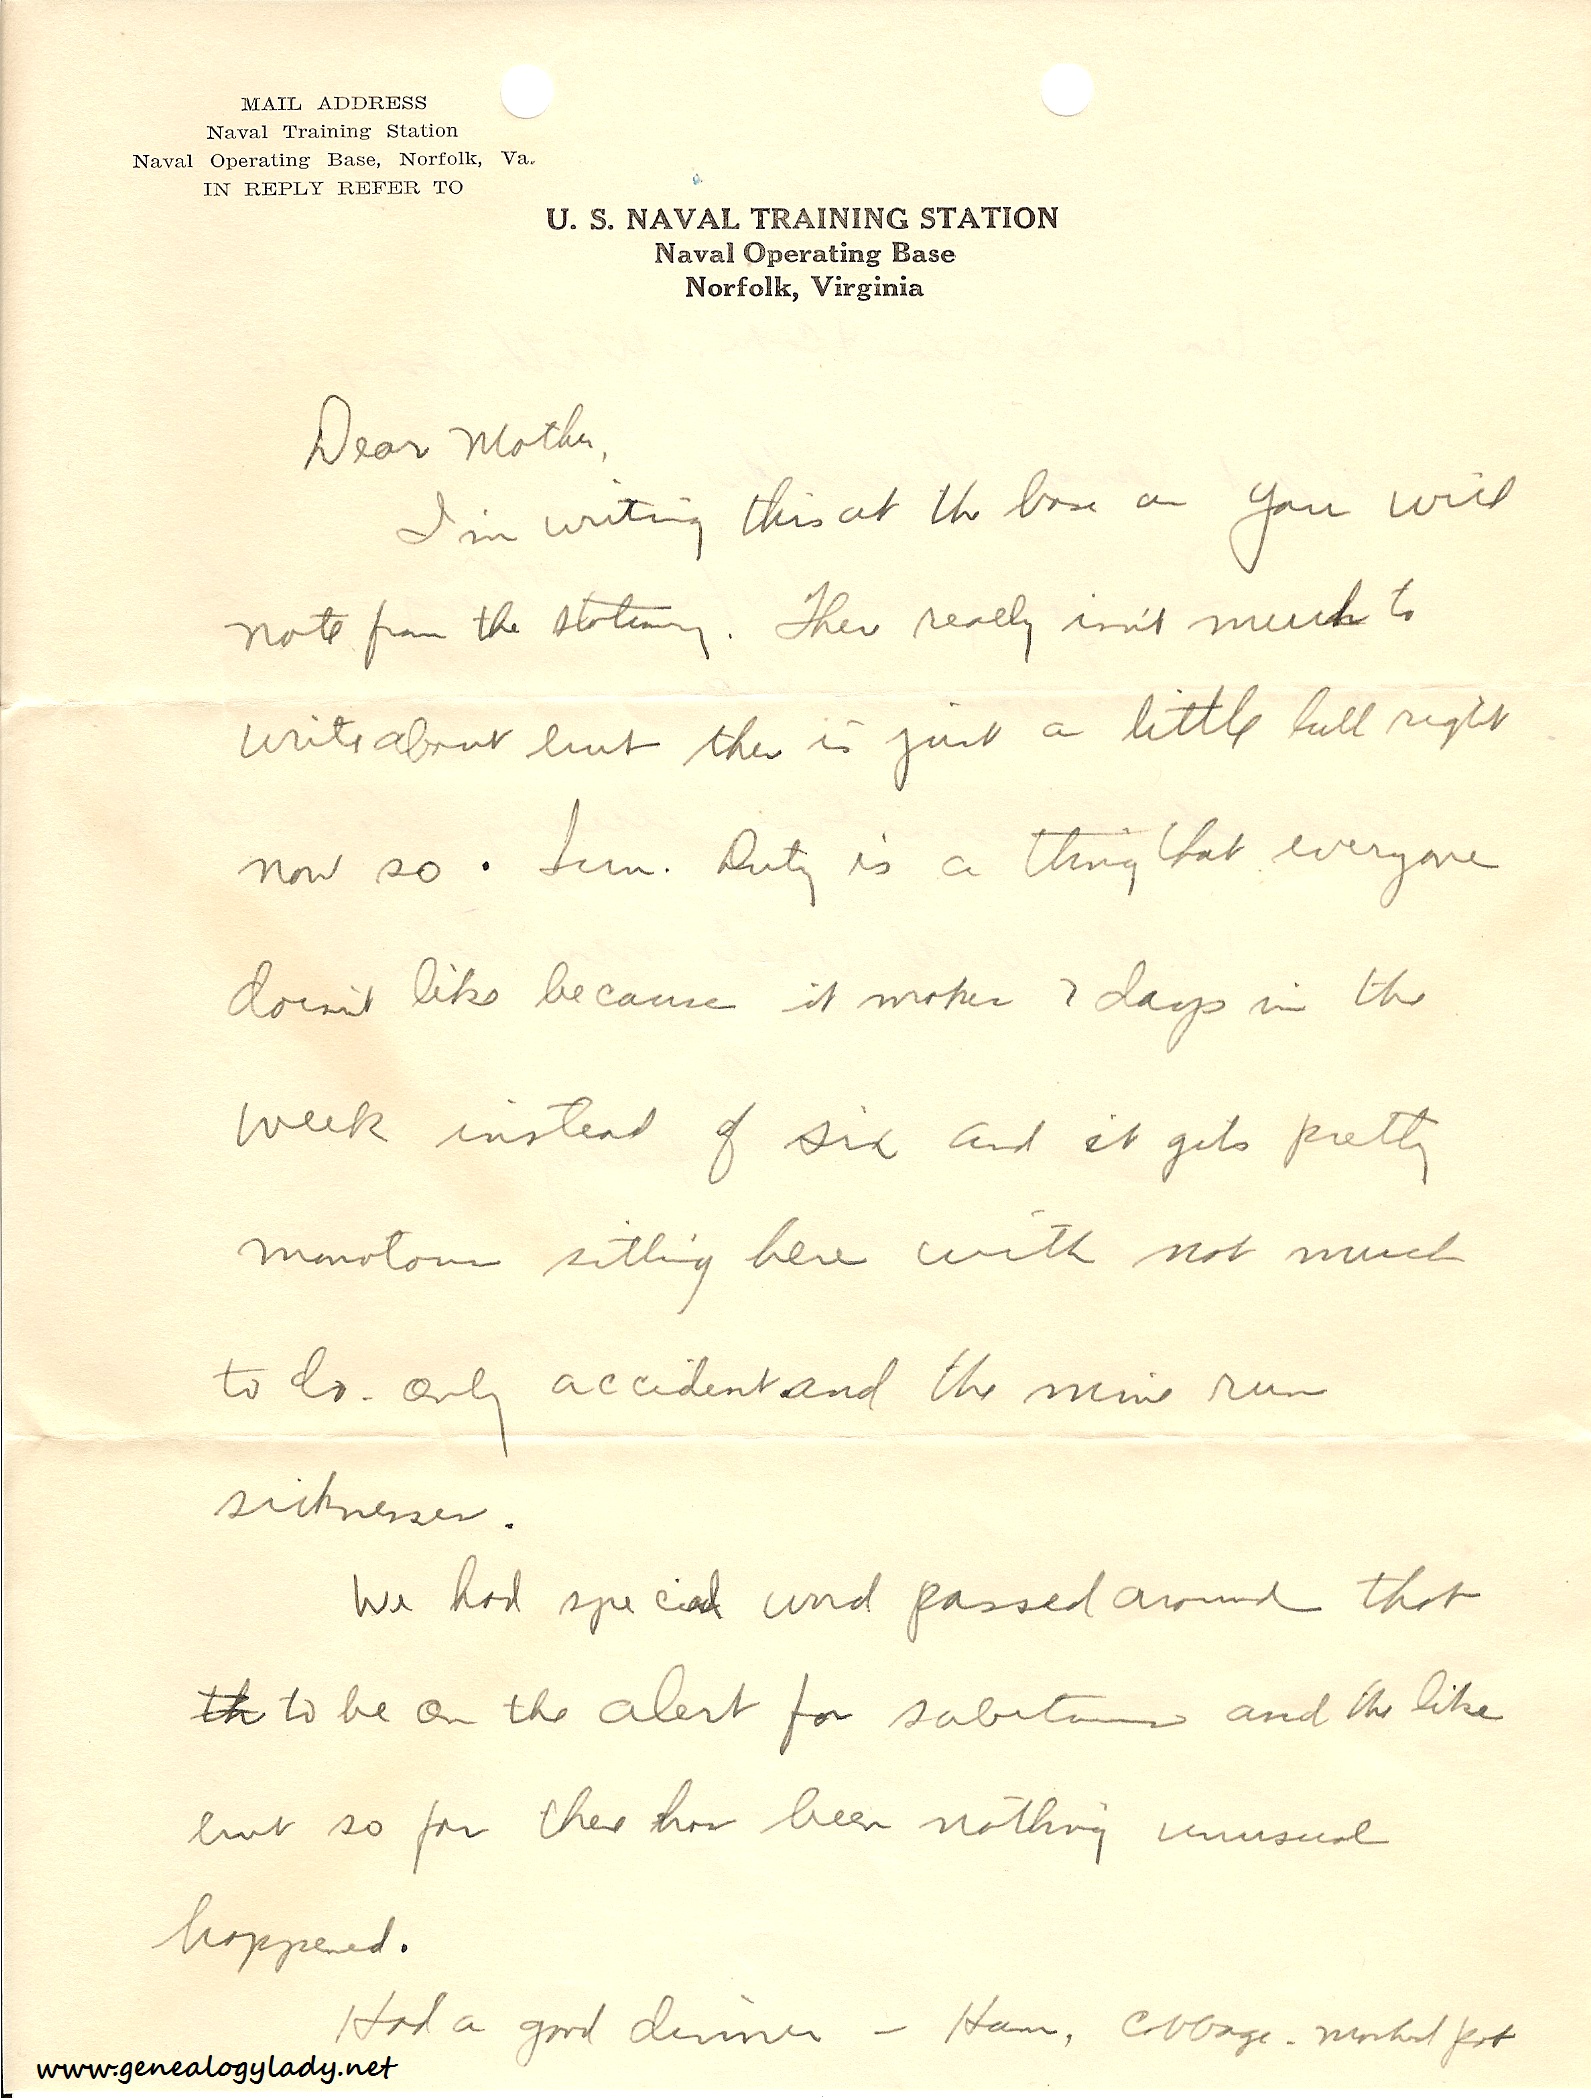 MAIL ADDRESS
Naval Training Station
Naval Operating Base, Norfolk, Va.
IN REPLY REFER TO
U. S. NAVAL TRAINING STATION
Naval Operating Base
Norfolk, Virginia
Dear Mother,
I'm writing this at the base as you will
note from the stationery. There really isn't much to
write about but there is just a little lull right
now so. Sun. Duty is a thing that everyone
doesn't like because it makes 7 days in the
week instead of six and it gets pretty
monotonous sitting here with not much
to do - only accidents and the mine run
sicknesses.
We had special word passed around that
th to be on the alert for and the like
but so far there has been nothing unusual
happened.
Had a good dinner - Ham, cabbage - mashed pot
www.genealogylady.net